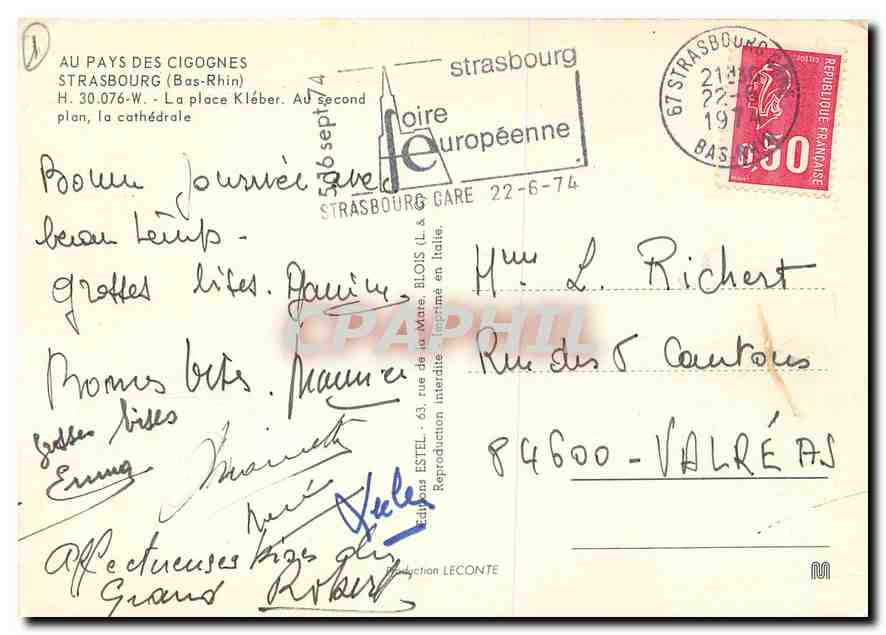 1
AU PAYS DES CIGOGNES
STRASBOURG (Bas-Rhin)
H. 30.076-W. - La place Kléber. Au second
plan, la cathédrale
Bonne journée avec
beau temps -
grosses bises. Janine
Bonnes bises. Maurice
grosses bises
Emma
René
Affectueuses bises du
Grand Robert
5-16 sept 74
strasbourg
foire
européenne
STRASBOURG GARE 22-6-74
67 STRASBOURG
22-6
1974
BAS-RHIN
REPUBLIQUE FRANÇAISE
0,50
Editions ESTEL - 63, rue de la Mare, BLOIS (L. &
Reproduction interdite - Imprimé en Italie.
Production LECONTE
CPAPHIL
Mme L. Richert
Rue des 5 Cantons
84600 - VALRÉAS
M